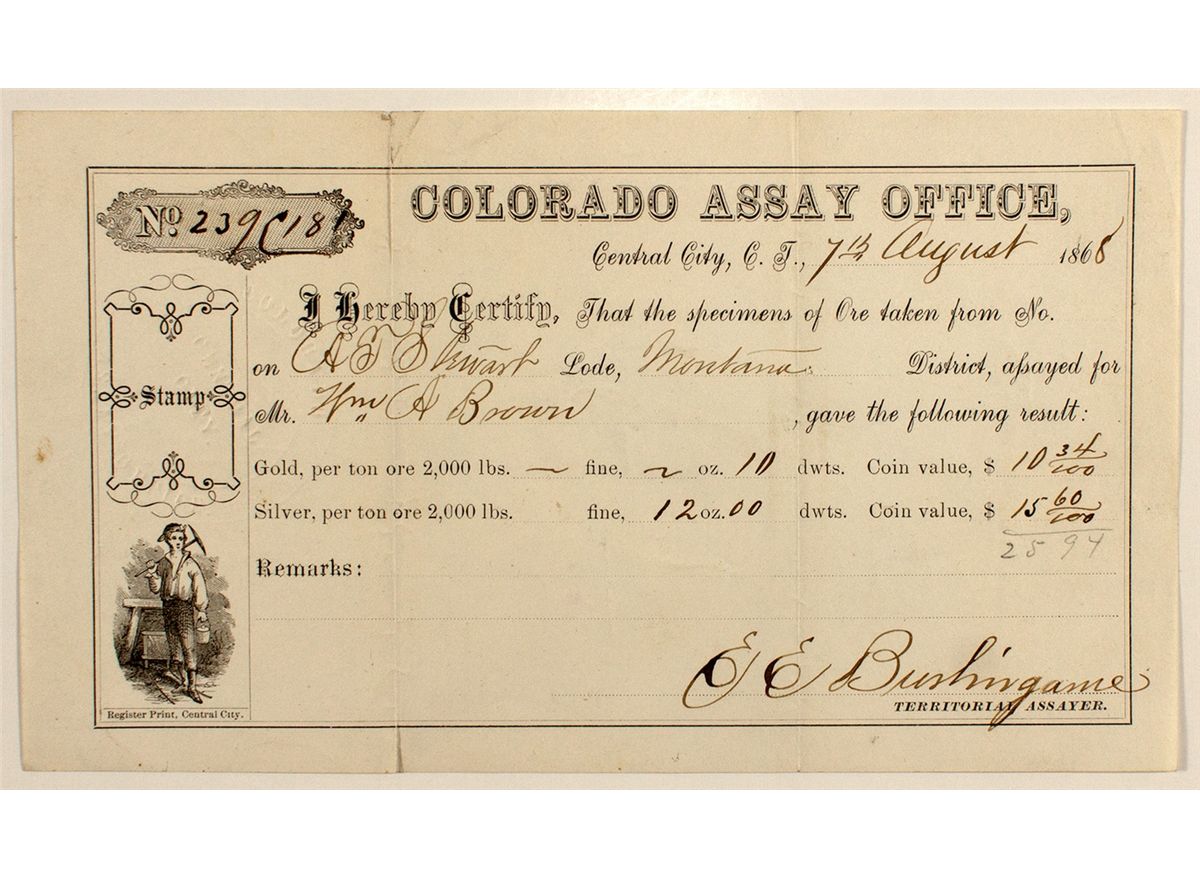 No. 239C181
COLORADO ASSAY OFFICE,
Central City, C. T., 7th August 1868
I Hereby Certify, That the specimens of Ore taken from No.
on A T Stewart Lode, Montana District, assayed for
Mr. Wm A Brown, gave the following result:
Gold, per ton ore 2,000 lbs. ~ fine, ~ oz. 10 dwts. Coin value, $ 10 34/100
Silver, per ton ore 2,000 lbs. fine, 12 oz. 00 dwts. Coin value, $ 15 60/100
25 94
Stamp
Remarks:
E E Burlingame
TERRITORIAL ASSAYER.
Register Print, Central City.